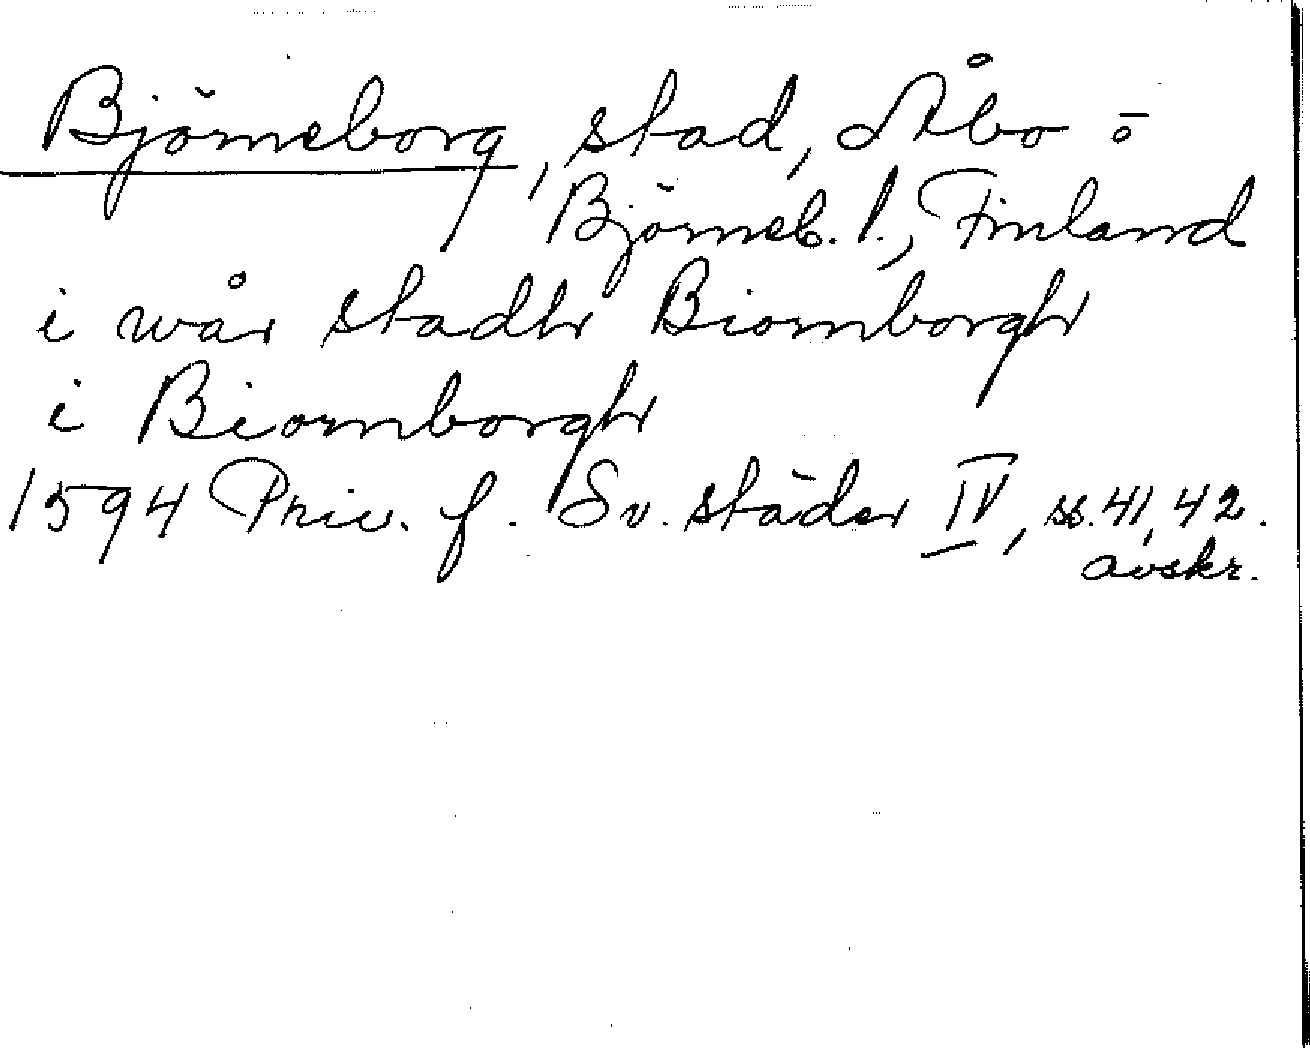 Björneborg, stad, Åbo o
Björneb. l., Finland
i wår stadh Biornborgh
i Biornborgh
1594 Priv. f. Sv. städer IV, ss. 41, 42.
avskr.